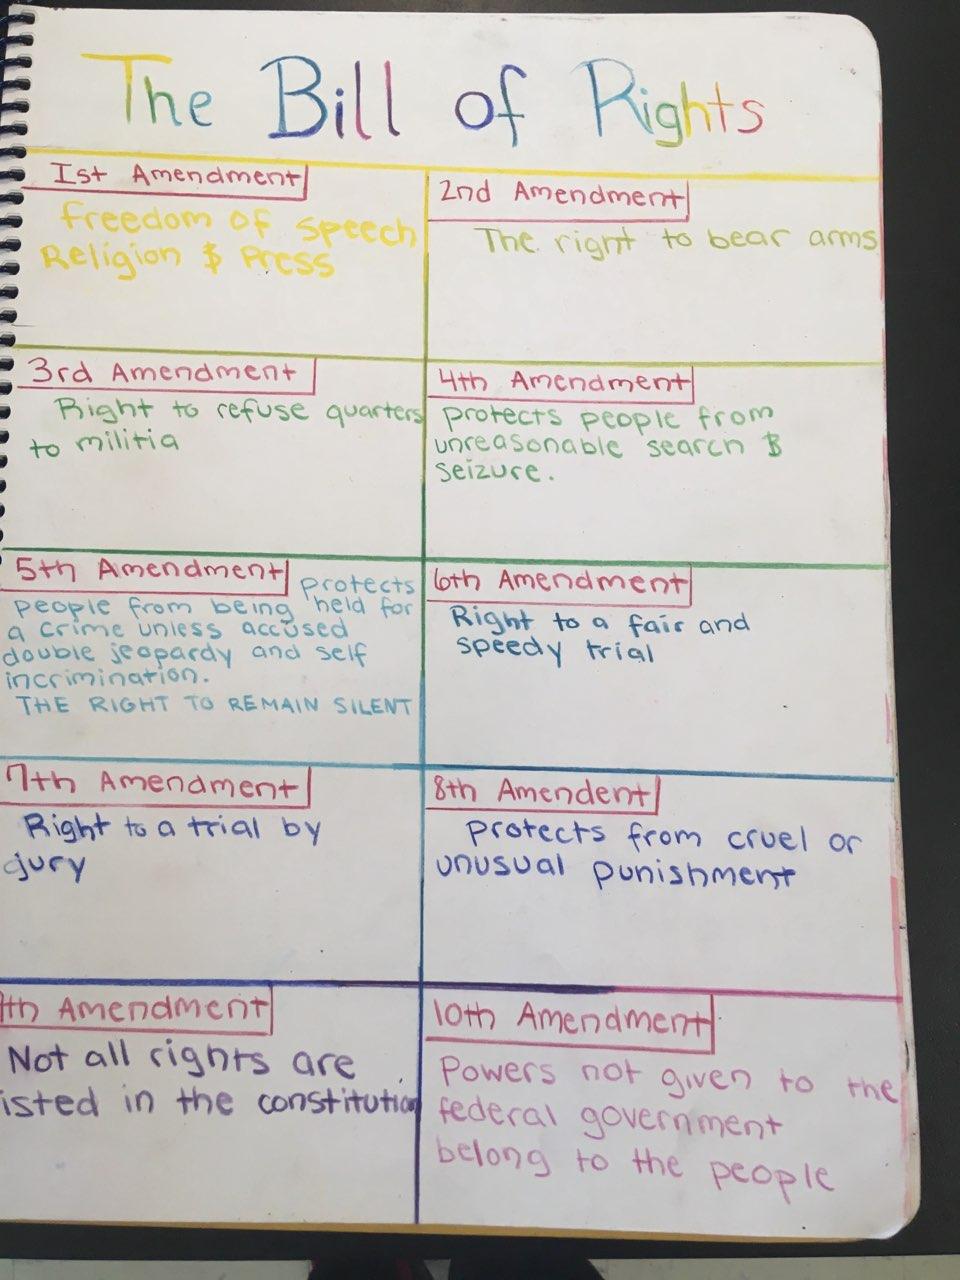 The Bill of Rights
1st Amendment
freedom of speech
Religion & Press
2nd Amendment
The right to bear arms
3rd Amendment
Right to refuse quarters
to militia
4th Amendment
protects people from
unreasonable search &
seizure.
5th Amendment protects
people from being held for
a crime unless accused
double jeopardy and self
incrimination.
THE RIGHT TO REMAIN SILENT
6th Amendment
Right to a fair and
speedy trial
7th Amendment
Right to a trial by
jury
8th Amendent
protects from cruel or
unusual punishment
th Amendment
Not all rights are
isted in the constitution
10th Amendment
Powers not given to the
federal government
belong to the people